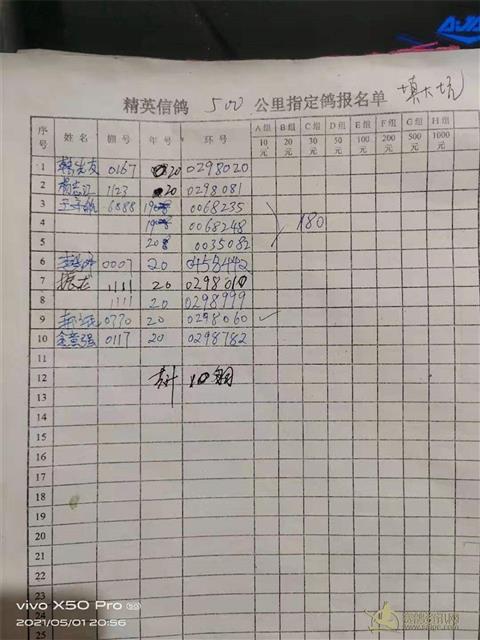 精英信鸽 500 公里指定鸽报名单 填大坑
序号 姓名 棚号 年号 环号 A组10元 B组20元 C组30元 D组50元 E组100元 F组200元 G组500元 H组1000元
1 0167 20 0298020
2 1123 20 0298081
3 6888 19 0068235
4 19 0068248 180
5 20 0035082
6 0007 20 0458442
7 1111 20 0298010
8 1111 20 0298999
9 0770 20 0298060 ✓
10 0117 20 0298782
11
12 共计 10羽
13
14
15
16
17
18
19
20
21
22
23
24
25
vivo X50 Pro
2021/05/01 20:56